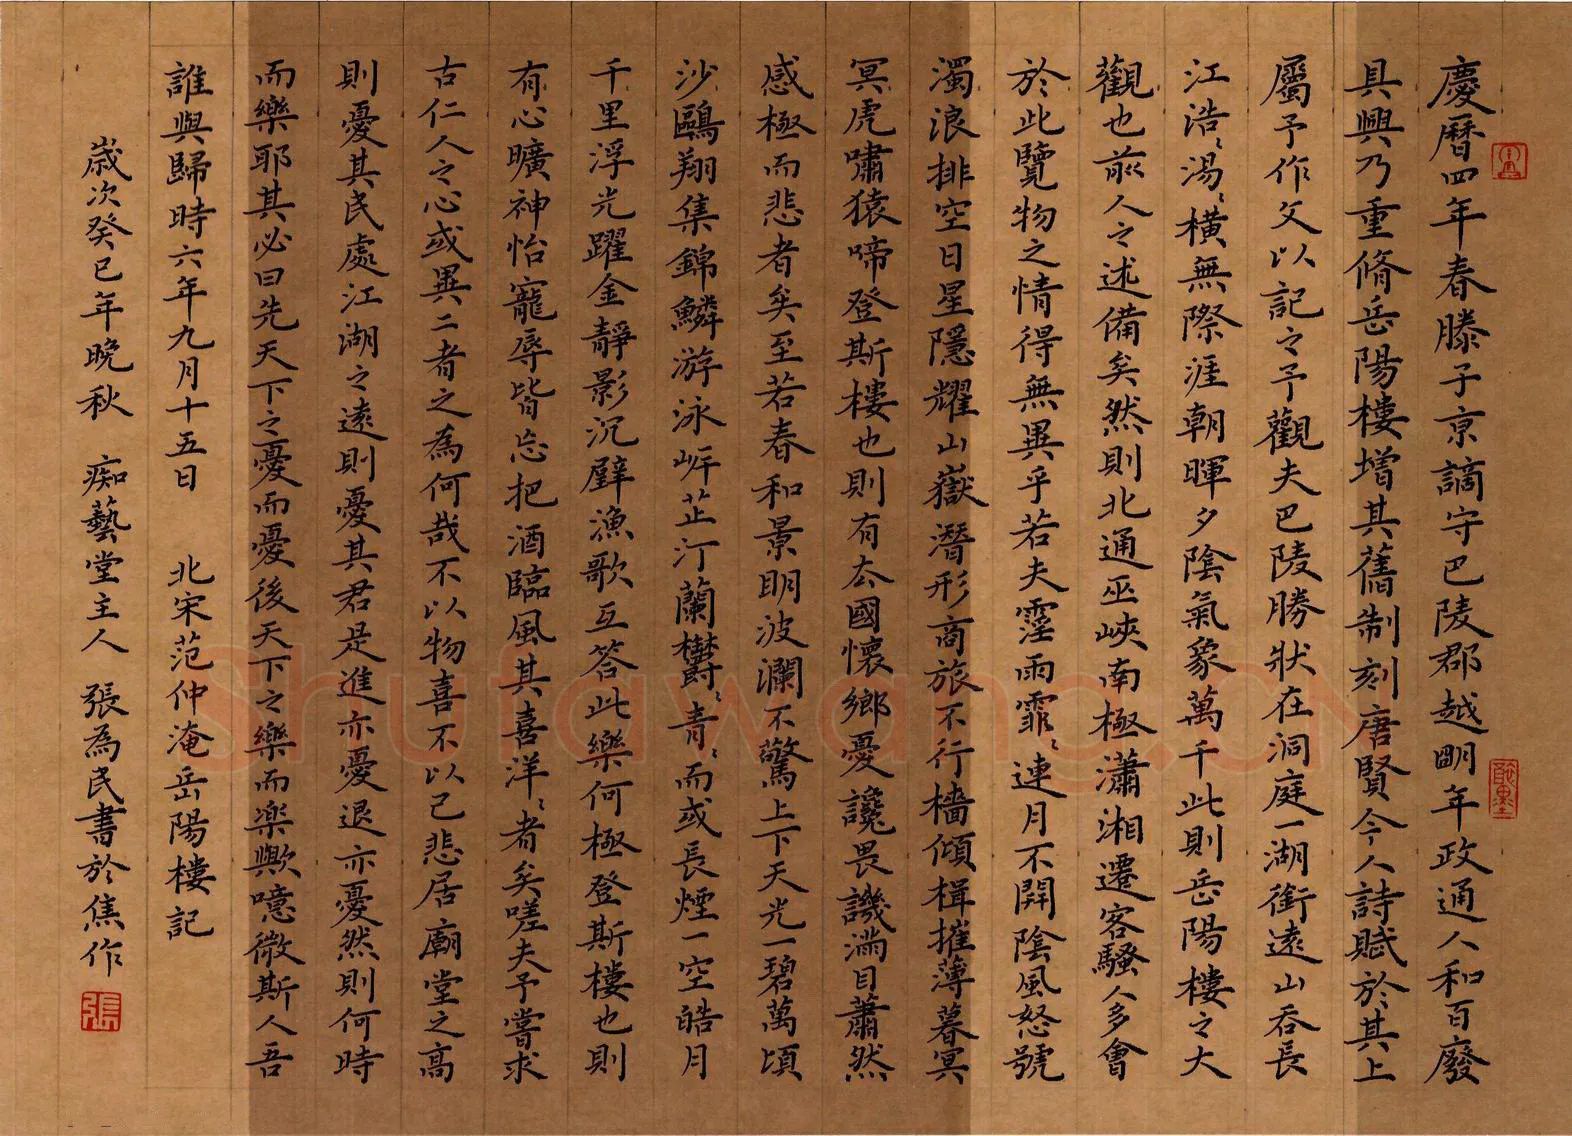 慶曆四年春滕子京謫守巴陵郡越明年政通人和百廢
具興乃重脩岳陽樓增其舊制刻唐賢今人詩賦於其上
屬予作文以記之予觀夫巴陵勝狀在洞庭一湖銜遠山吞長
江浩〻湯〻橫無際涯朝暉夕陰氣象萬千此則岳陽樓之大
觀也前人之述備矣然則北通巫峽南極瀟湘遷客騷人多會
於此覽物之情得無異乎若夫霪雨霏〻連月不開陰風怒號
濁浪排空日星隱耀山嶽潛形商旅不行檣傾楫摧薄暮冥
冥虎嘯猿啼登斯樓也則有去國懷鄉憂讒畏譏滿目蕭然
感極而悲者矣至若春和景明波瀾不驚上下天光一碧萬頃
沙鷗翔集錦鱗游泳岸芷汀蘭欝〻青〻而或長煙一空皓月
千里浮光躍金靜影沉璧漁歌互答此樂何極登斯樓也則
有心曠神怡寵辱皆忘把酒臨風其喜洋〻者矣嗟夫予嘗求
古仁人之心或異二者之為何哉不以物喜不以己悲居廟堂之高
則憂其民處江湖之遠則憂其君是進亦憂退亦憂然則何時
而樂耶其必曰先天下之憂而憂後天下之樂而楽歟噫微斯人吾
誰與歸時六年九月十五日 北宋范仲淹岳陽樓記
歲次癸巳年晚秋 痴藝堂主人 張為民書於焦作
張
Shufawang.CN